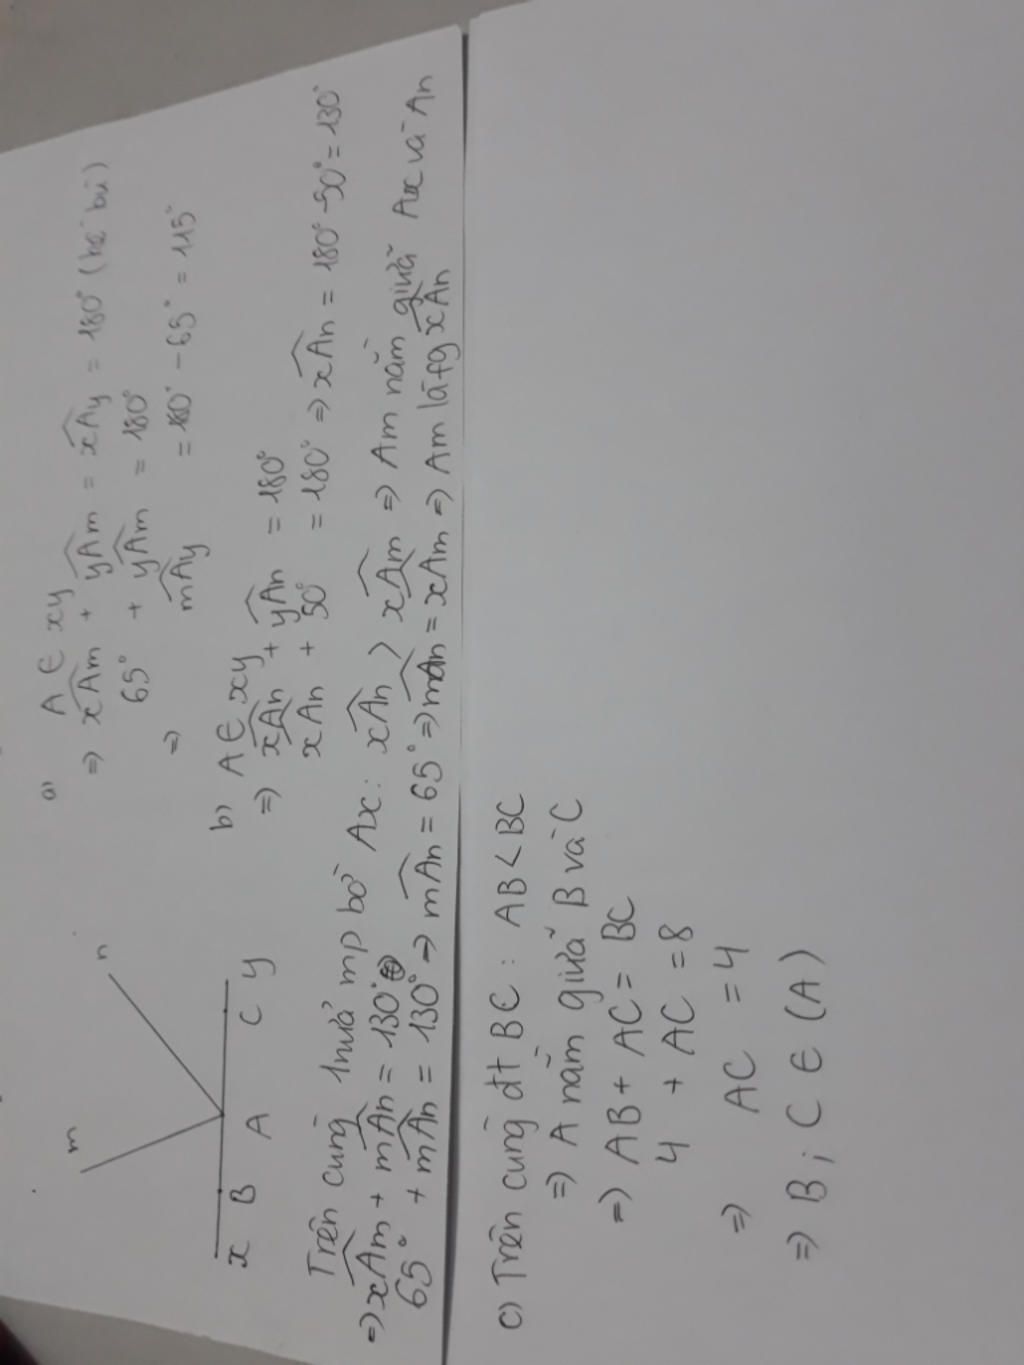 a) A ∈ xy
⇒ xAm + yAm = xAy = 180° (kề bù)
65° + yAm = 180°
⇒ mAy = 180° - 65° = 115°
m
n
x B A C y
b) A ∈ xy
⇒ xAn + yAn = 180°
xAn + 50° = 180° ⇒ xAn = 180° - 50° = 130°
Trên cùng 1 nửa mp bờ Ax: xAn > xAm ⇒ Am nằm giữa Ax và An
⇒ xAm + mAn = 130°
65° + mAn = 130° ⇒ mAn = 65° ⇒ mAn = xAm ⇒ Am là fg xAn
c) Trên cùng đt BC : AB < BC
⇒ A nằm giữa B và C
⇒ AB + AC = BC
4 + AC = 8
⇒ AC = 4
⇒ B ; C ∈ (A)